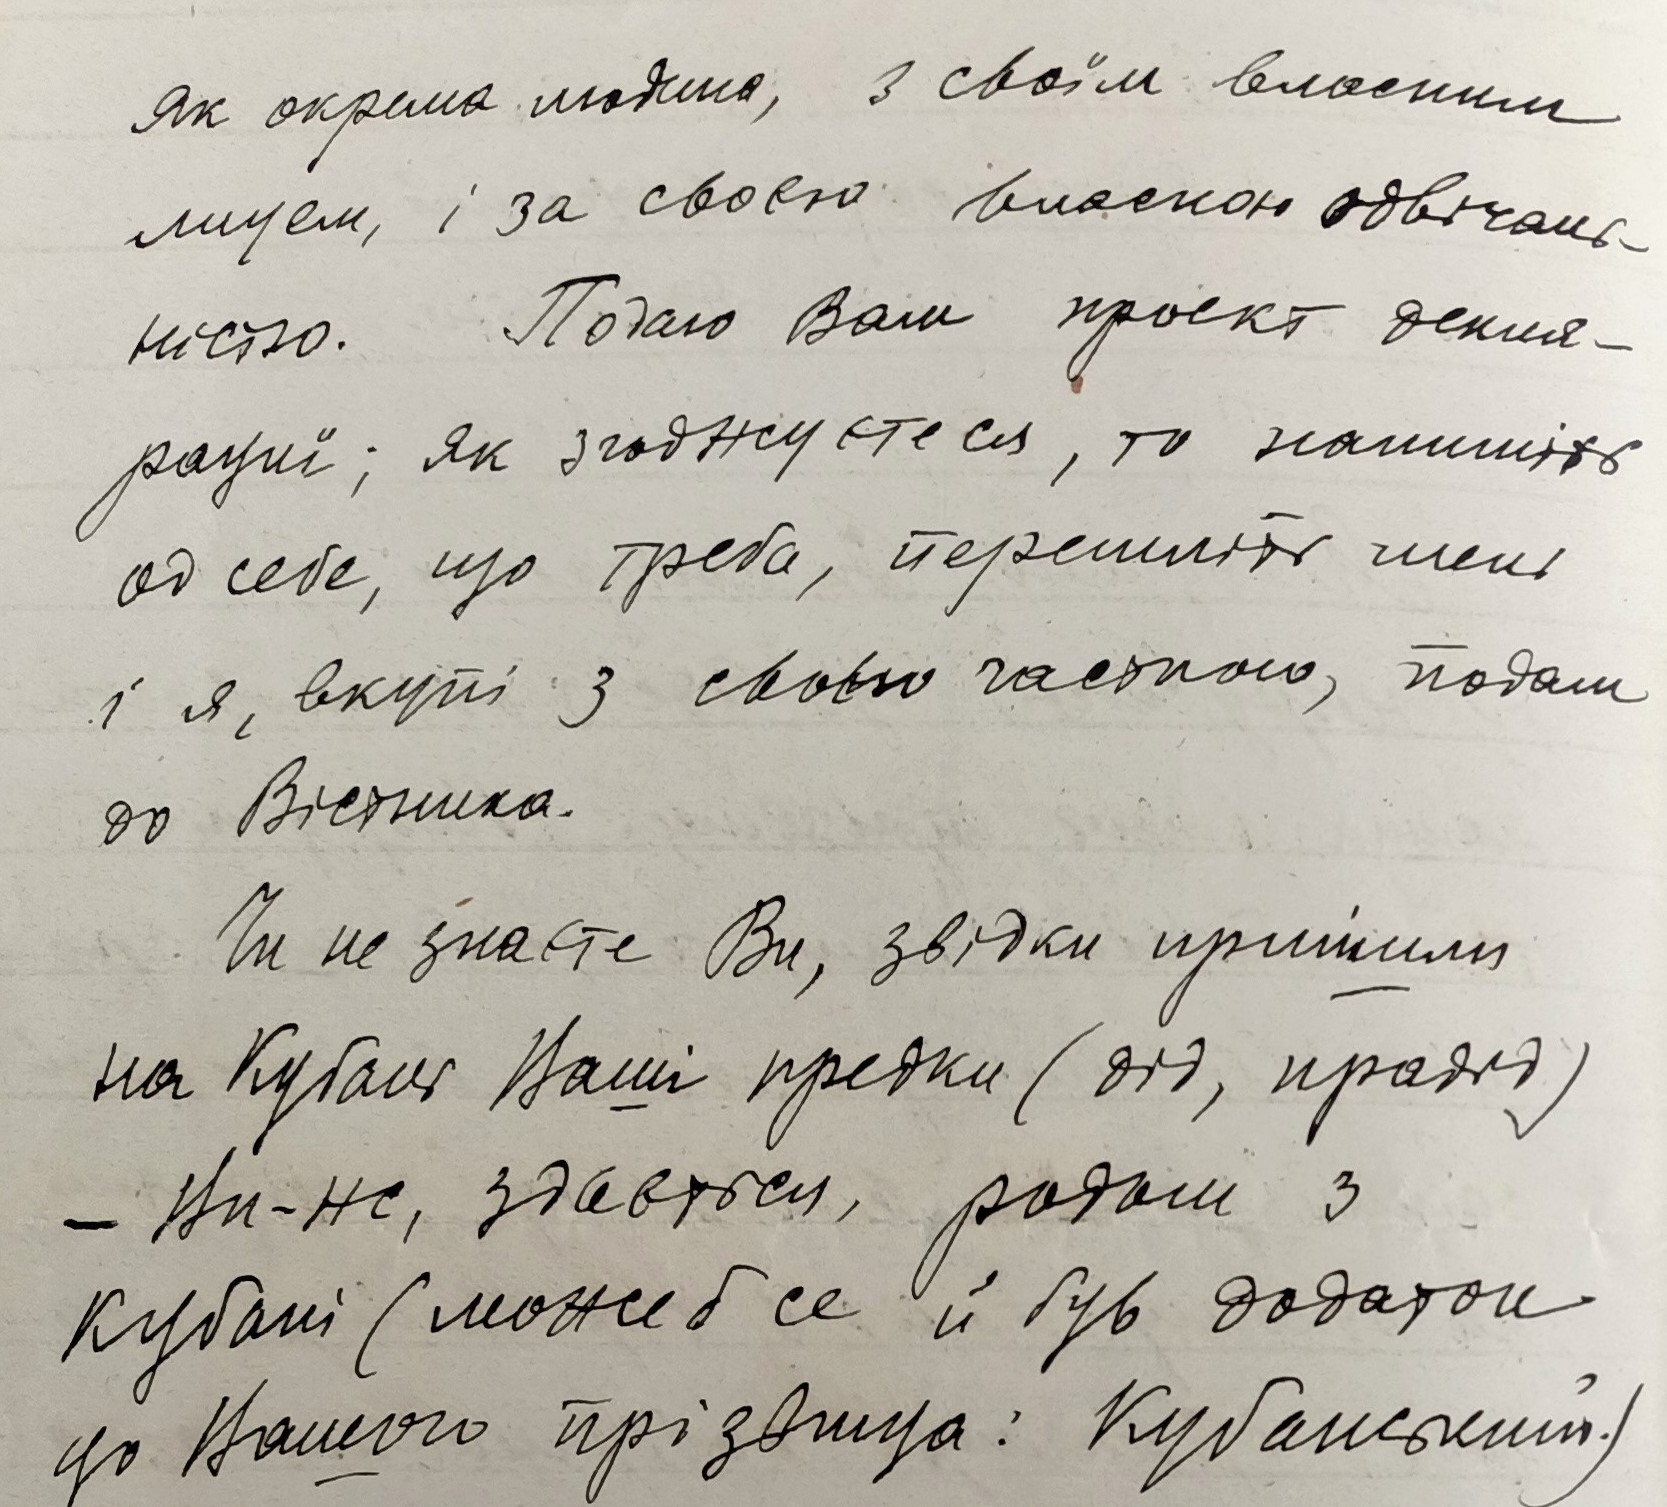 як окрема людина, з своїм власним
лицем, і за своєю власною одвічаль-
ністю. Подаю Вам проєкт декля-
рації; як згоджуєтеся, то напишіть
од себе, що треба, перешліть мені
і я, вкупі з своєю частиою, подам
до Вістника.
Чи не знаєте Ви, звідки прийшли
на Кубань Ваші предки (дід, прадід)
– Ви-же, здається, родом з
Кубані (може б се й був додаток
до Вашого прізвища: Кубанський.)